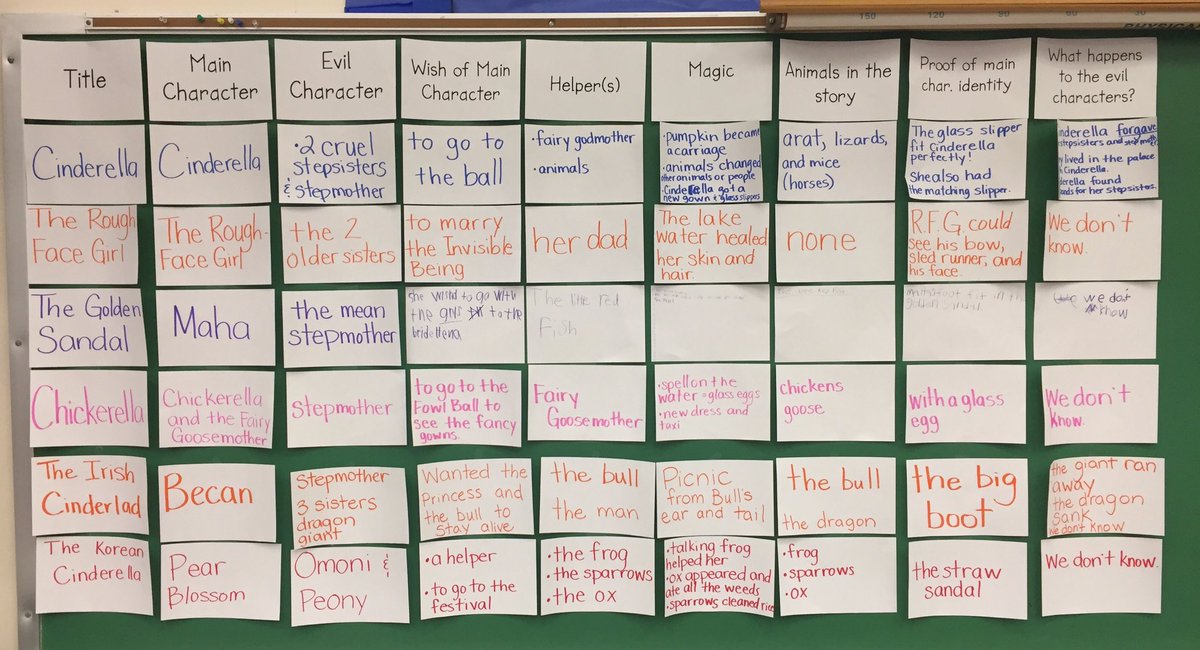 150
120
90
60
30
PHYSICAL
Title
Main
Character
Evil
Character
Wish of Main
Character
Helper(s)
Magic
Animals in the
story
Proof of main
char. identity
What happens
to the evil
characters?
Cinderella
Cinderella
•2 cruel
stepsisters
& stepmother
to go to
the ball
•fairy godmother
•animals
•Pumpkin became
a carriage
•animals changed
other animals or people
•Cinderella got a
new gown & glass slippers
a rat, lizards,
and mice
(horses)
The glass slipper
fit Cinderella
perfectly!
She also had
the matching slipper.
inderella forgave
stepsisters and
y lived in the palace
Cinderella.
derella found
ands for her stepsisters.
The Rough
Face Girl
The Rough-
Face Girl
the 2
older sisters
to marry
the Invisible
Being
her dad
The lake
water healed
her skin and
hair.
none
R.F.G. could
see his bow,
sled runner, and
his face.
We don't
know.
The Golden
Sandal
Maha
the mean
stepmother
she to go with
the to the
The little red
Fish
we don't
know
Chickerella
Chickerella
and the Fairy
Goosemother
Stepmother
to go to the
Fowl Ball to
see the fancy
gowns.
Fairy
Goosemother
•spell on the
water = glass eggs
•new dress and
taxi
chickens
goose
with a glass
egg
We don't
know.
The Irish
Cinderlad
Becan
Stepmother
3 sisters
dragon
giant
Wanted the
Princess and
the bull to
stay alive
the bull
the man
Picnic
from Bull's
ear and tail
the bull
the dragon
the big
boot
the giant ran
away
the dragon
sank
we don't know
The Korean
Cinderella
Pear
Blossom
Omoni &
Peony
•a helper
•to go to the
festival
•the frog
•the sparrows
•the ox
•talking frog
helped her
•ox appeared and
ate all the weeds
•sparrows cleaned rice
•frog
•sparrows
•ox
the straw
sandal
We don't know.